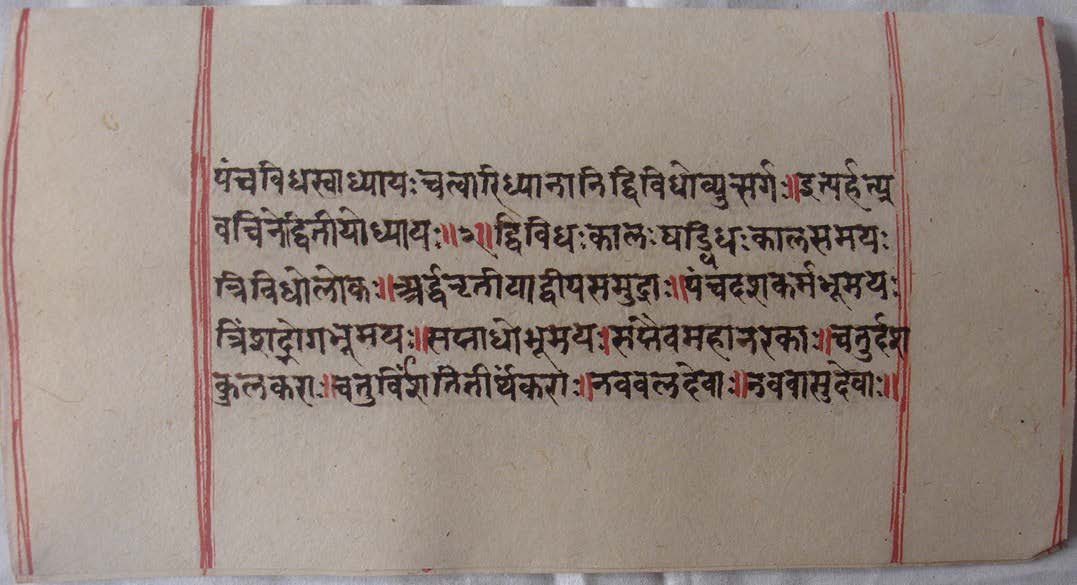 पंचविधस्वाध्यायः चत्वारिध्यानानिद्विविधोव्युत्सर्गः॥इत्यर्हत्प्र
वचिनेद्वितीयोध्यायः॥२॥द्विविधः कालः षड्विधः कालसमयः
त्रिविधोलोकः॥अर्द्धतृतीयाद्वीपसमुद्राः॥पंचदशकर्मभूमयः
त्रिंशद्भोगभूमयः॥सप्ताधोभूमयः॥सप्तैवमहानरकाः॥चतुर्दश
कुलकराः॥चतुर्विंशतितीर्थंकराः॥नवबलदेवाः॥नववासुदेवाः॥